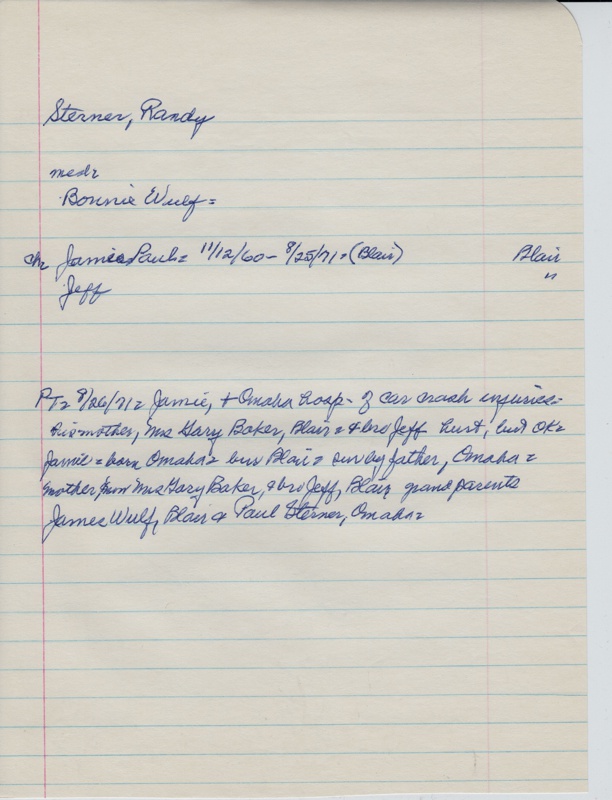 Sterner, Randy
med=
Bonnie Wulf=
ch= Jamie Paul= 11/12/60- 8/25/71=(Blair) Blair
Jeff "
PT= 8/26/71= Jamie, + Omaha hosp- of car crash injuries-
his mother, Mrs Gary Baker, Blair= & bro Jeff hurt, but OK=
Jamie= born Omaha= bur Blair= sur by father, Omaha=
mother now Mrs Gary Baker, & bro Jeff, Blair grandparents
James Wulf, Blair & Paul Sterner, Omaha=